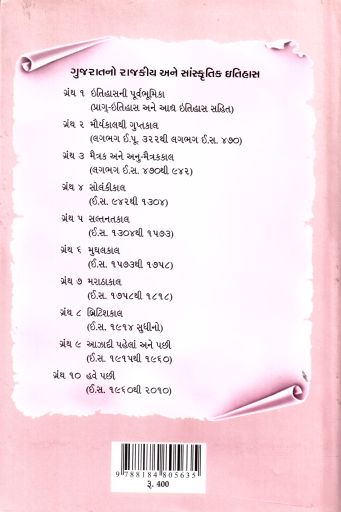 ગુજરાતનો રાજકીય અને સાંસ્કૃતિક ઇતિહાસ
ગ્રંથ ૧ ઇતિહાસની પૂર્વભૂમિકા
(પ્રાગ્-ઇતિહાસ અને આદ્ય ઇતિહાસ સહિત)
ગ્રંથ ૨ મૌર્યકાલથી ગુપ્તકાલ
(લગભગ ઈ.પૂ. ૩૨૨થી લગભગ ઈ.સ. ૪૭૦)
ગ્રંથ ૩ મૈત્રક અને અનુ-મૈત્રકકાલ
(ઈ.સ. લગભગ ૪૭૦થી ૯૪૨)
ગ્રંથ ૪ સોલંકીકાલ
(ઈ.સ. ૯૪૨થી ૧૩૦૪)
ગ્રંથ ૫ સલ્તનતકાલ
(ઈ.સ. ૧૩૦૪થી ૧૫૭૩)
ગ્રંથ ૬ મુઘલકાલ
(ઈ.સ. ૧૫૭૩થી ૧૭૫૮)
ગ્રંથ ૭ મરાઠાકાલ
(ઈ.સ. ૧૭૫૮થી ૧૮૧૮)
ગ્રંથ ૮ બ્રિટિશકાલ
(ઈ.સ. ૧૯૧૪ સુધીનો)
ગ્રંથ ૯ આઝાદી પહેલાં અને પછી
(ઈ.સ. ૧૯૧૫થી ૧૯૬૦)
ગ્રંથ ૧૦ હવે પછી
(ઈ.સ. ૧૯૬૦થી ૨૦૧૦)
9 788184 805635
રૂ. 400